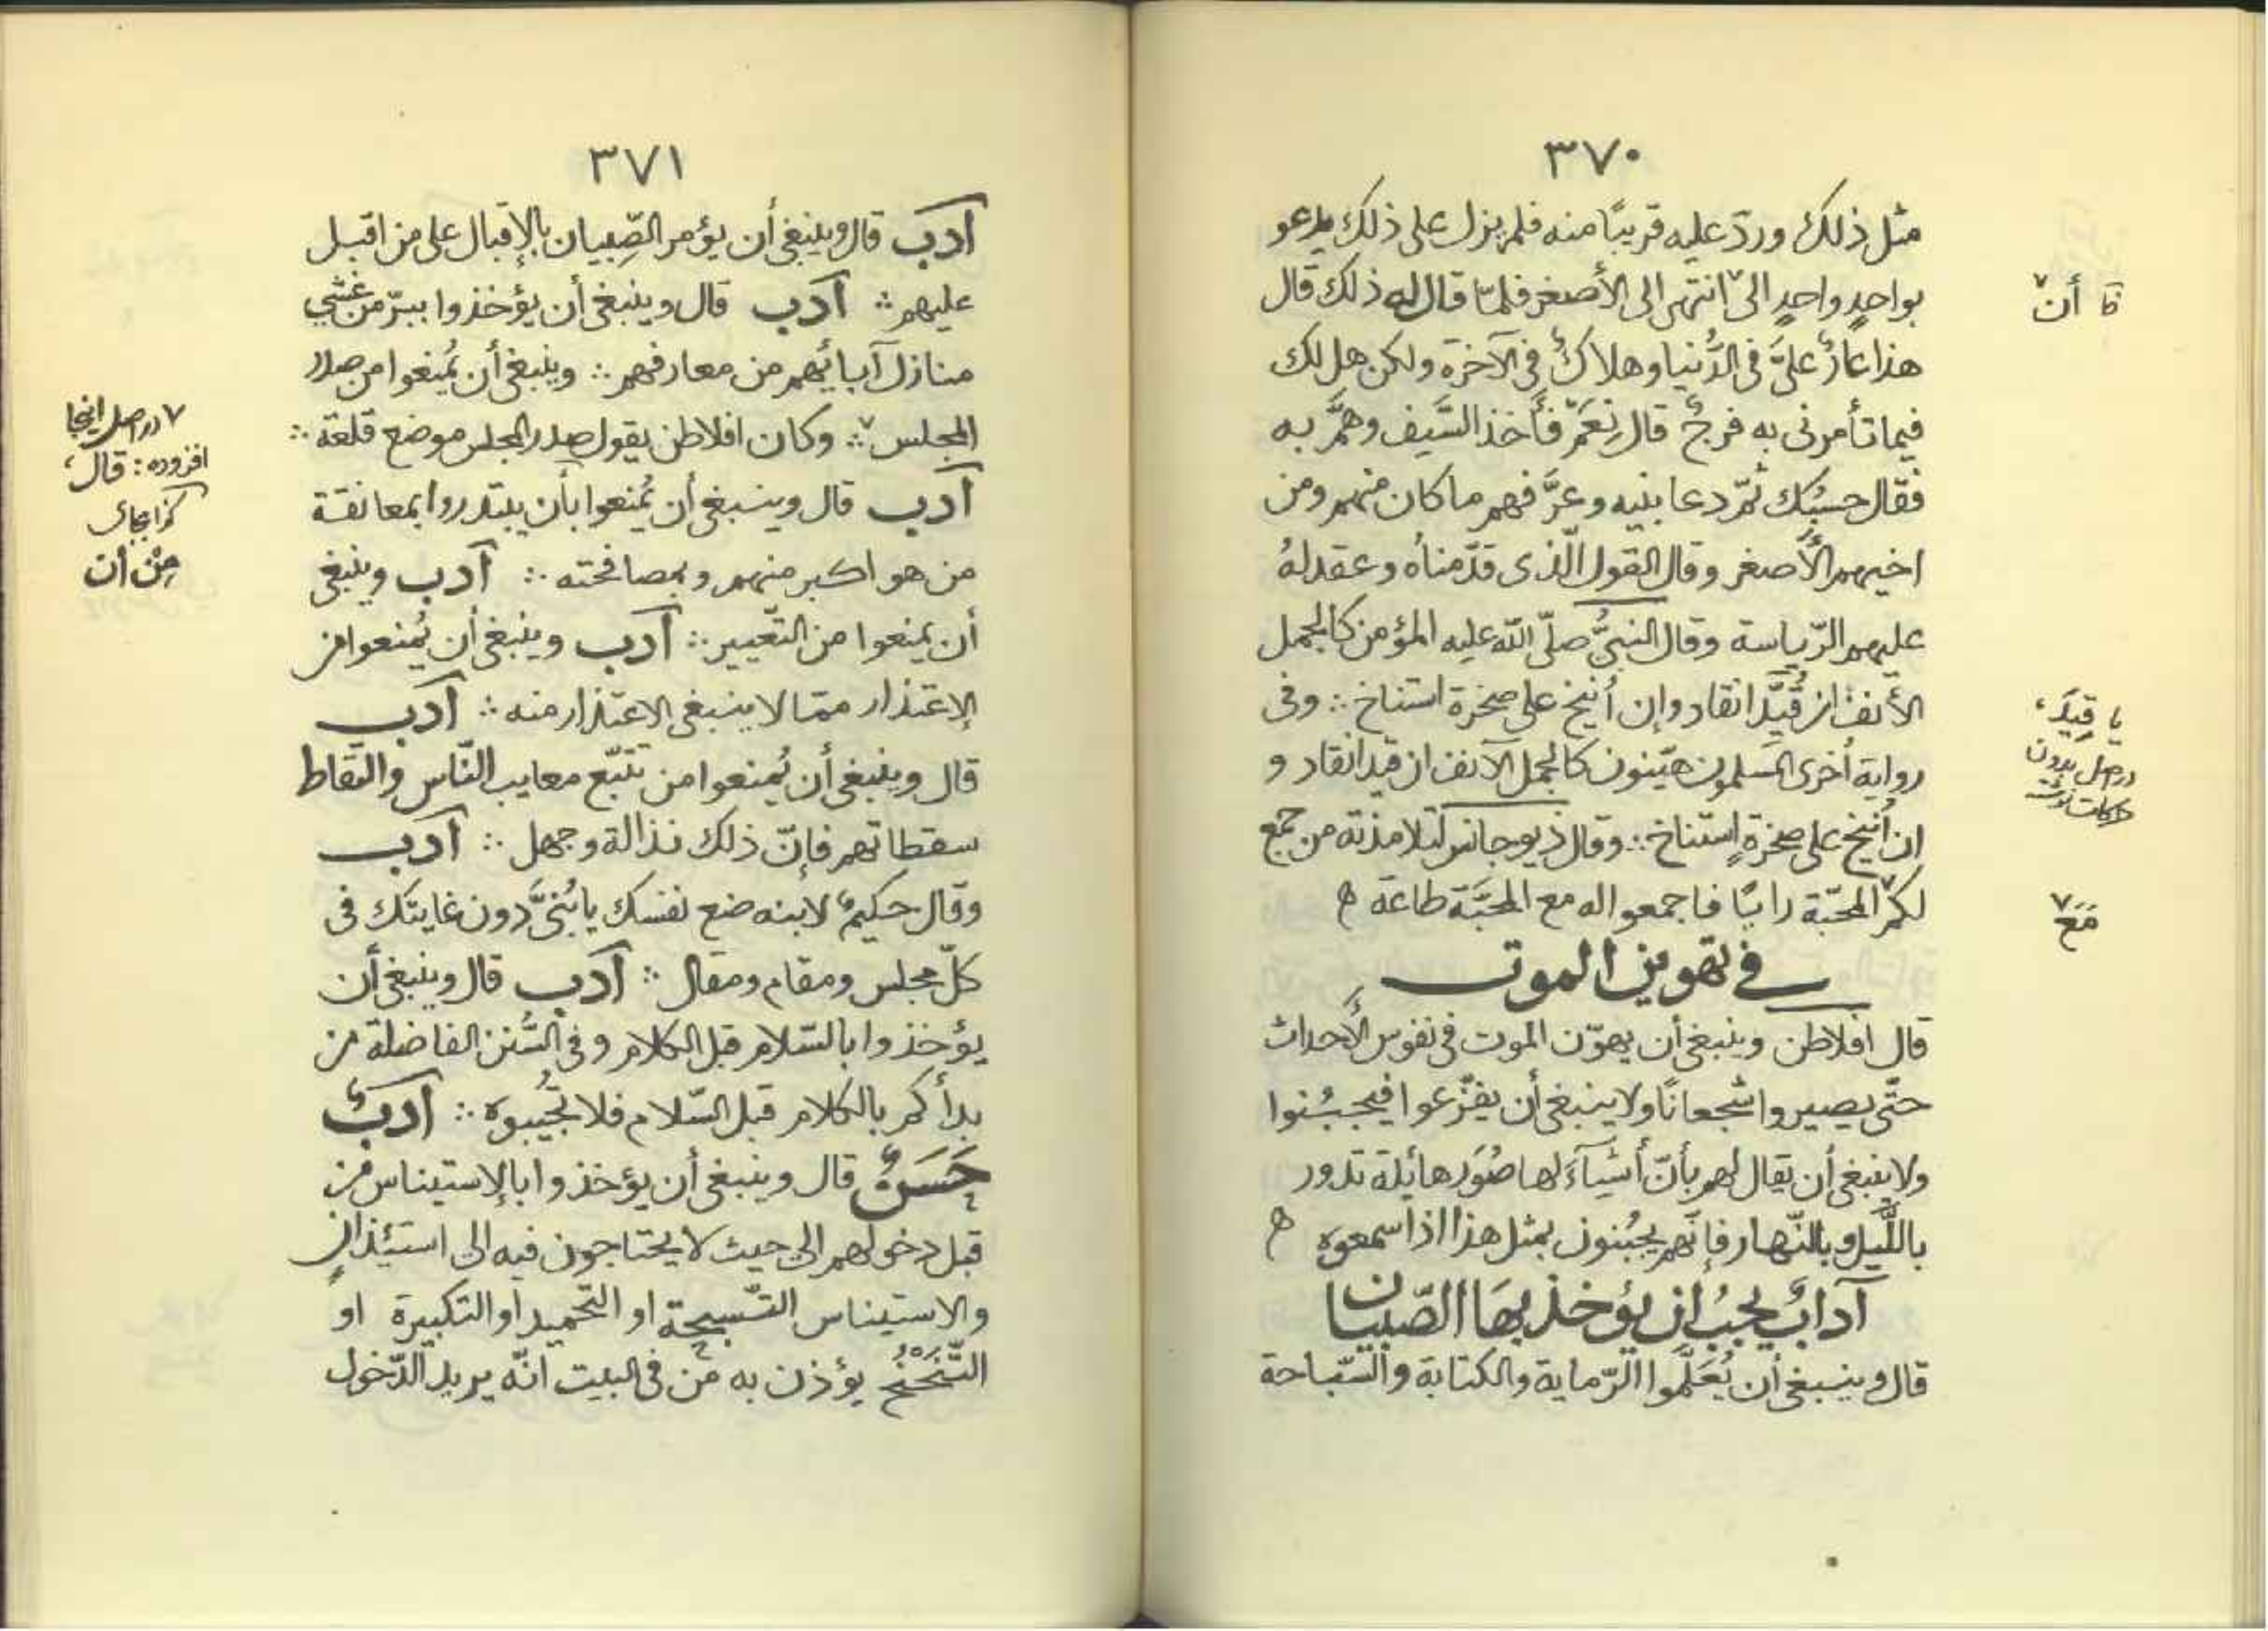 ٣٧٠
مثل ذلك وردّ عليه قريبًا منه فلم يزل على ذلك يدعو
بواحدٍ واحدٍ الى٧ انتهى الى الأصغر فلمّا قال له ذلك قال
هذا عارٌ علىَّ فى الدُّنيا وهلاكٌ فى الآخرة ولكن هل لك
فيما تأمرنى به فرجٌ قال نِعَمّ فأخذ السَّيف وهَمَّ به
فقال حسبُك ثمّ دعا بنيه وعرَّفهم ما كان منهم ومن
اخيهم الأصغر وقال القول الّذى قدَّمناه وعقد لهُ
عليهم الرّياسة وقال النبىُّ صلّى اللّه عليه المؤمن كالجمل
الأنف ان قُيِّدَ انقاد وإن أُنيخ على صخرة استناخ ∴ وفى
رواية أخرى المسلمون هيّنون كالجمل الآنف ان قيد انقاد و
ان أُنيخ على صخرةٍ استناخ ∴ وقال ذيوجانس لتلامذته من جمع
لكم٧ المحبّة رايًا فاجمعوا له مع المحبَّة طاعة
فى تهوين الموت
قال افلاطن وينبغى أن يهوّن الموت فى نفوس الأحداث
حتّى يصيروا شجعانًا ولا ينبغى أن يفزّعوا فيجبُنوا
ولا ينبغى أن يقال لهم بأنّ أشيآءَ لها صُوَر هائلة تدور
باللَّيل وبالنّهار فإنّهم يجبُنون بمثل هذا اذا سمعوه
آدابٌ يجبُ ان يؤخذ بهَا الصّبيان
قال وينبغى أن يُعَلَّموا الرّماية والكتابة والسّباحة
تا أن٧
يا قِيدَ،
دراصل بدون
حركات نوشته
مَعَ٧
٣٧١
أدب قال وينبغى أن يؤمر الصِّبيان بالإقبال على من اقبل
عليهم ∴ أدب قال وينبغى أن يؤخذوا ببرّ من غشي
منازل آبائهم من معارفهم ∴ وينبغى أن يُمنعوا من صدر
المجلس٧ ∴ وكان افلاطن يقول صدر المجلس موضع قلعة ∴
أدب قال وينبغى أن يُمنعوا بأن يبتدروا بمعانقة
من هو اكبر منهم وبمصافحته ∴ أدب وينبغى
أن يمنعوا من التّعيير ∴ أدب وينبغى أن يُمنعوا من
الإعتذار ممّا لا ينبغى الاعتذار منه ∴ أدب
قال وينبغى أن يُمنعوا من تتبّع معايب النّاس والتقاط
سقطاتهم فإنّ ذلك نذالة وجهل ∴ أدب
وقال حكيمٌ لابنه ضع نفسك يا بُنىَّ دون غايتك فى
كلّ مجلس ومقام ومقال ∴ أدب قال وينبغى أن
يؤخذوا بالسّلام قبل الكلام وفى السُّنن الفاضلة من
بدأكم بالكلام قبل السّلام فلا تُجيبوه ∴ أدبٌ
حَسَنٌ قال وينبغى أن يؤخذوا بالإستيناس من
قبل دخولهم الى حيث لا يحتاجون فيه الى استئذانٍ
والاستيناس التّسبيحة او التّحميد او التكبيرة او
التَّنَحْنُحُ يؤذن به من فى البيت انّه يريد الدّخول
٧ دراصل اينجا
افزوده: قال،
كذا بجاى
مِنْ أن